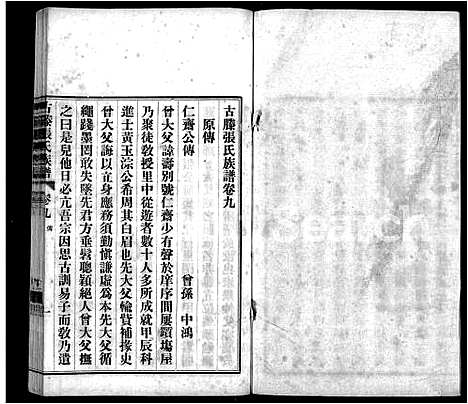 古滕張氏族譜卷九
原傳
仁齋公傳　曾孫　中鴻
曾大父諱壽別號仁齋少有聲於庠序間屢躓塲屋
乃聚徒敎授里中從遊者數十人多所成就甲辰科
進士黃玉淙公希周其白眉也先大父輸貲補掾史
曾大父誨以立身應務須勤愼謙虛爲本先大父循
繩踐墨罔敢失墜先君方垂髫聰穎絕人曾大父撫
之曰是兒他日必亢吾宗因思古訓易子而敎乃遣
古滕張氏族譜
卷九
一